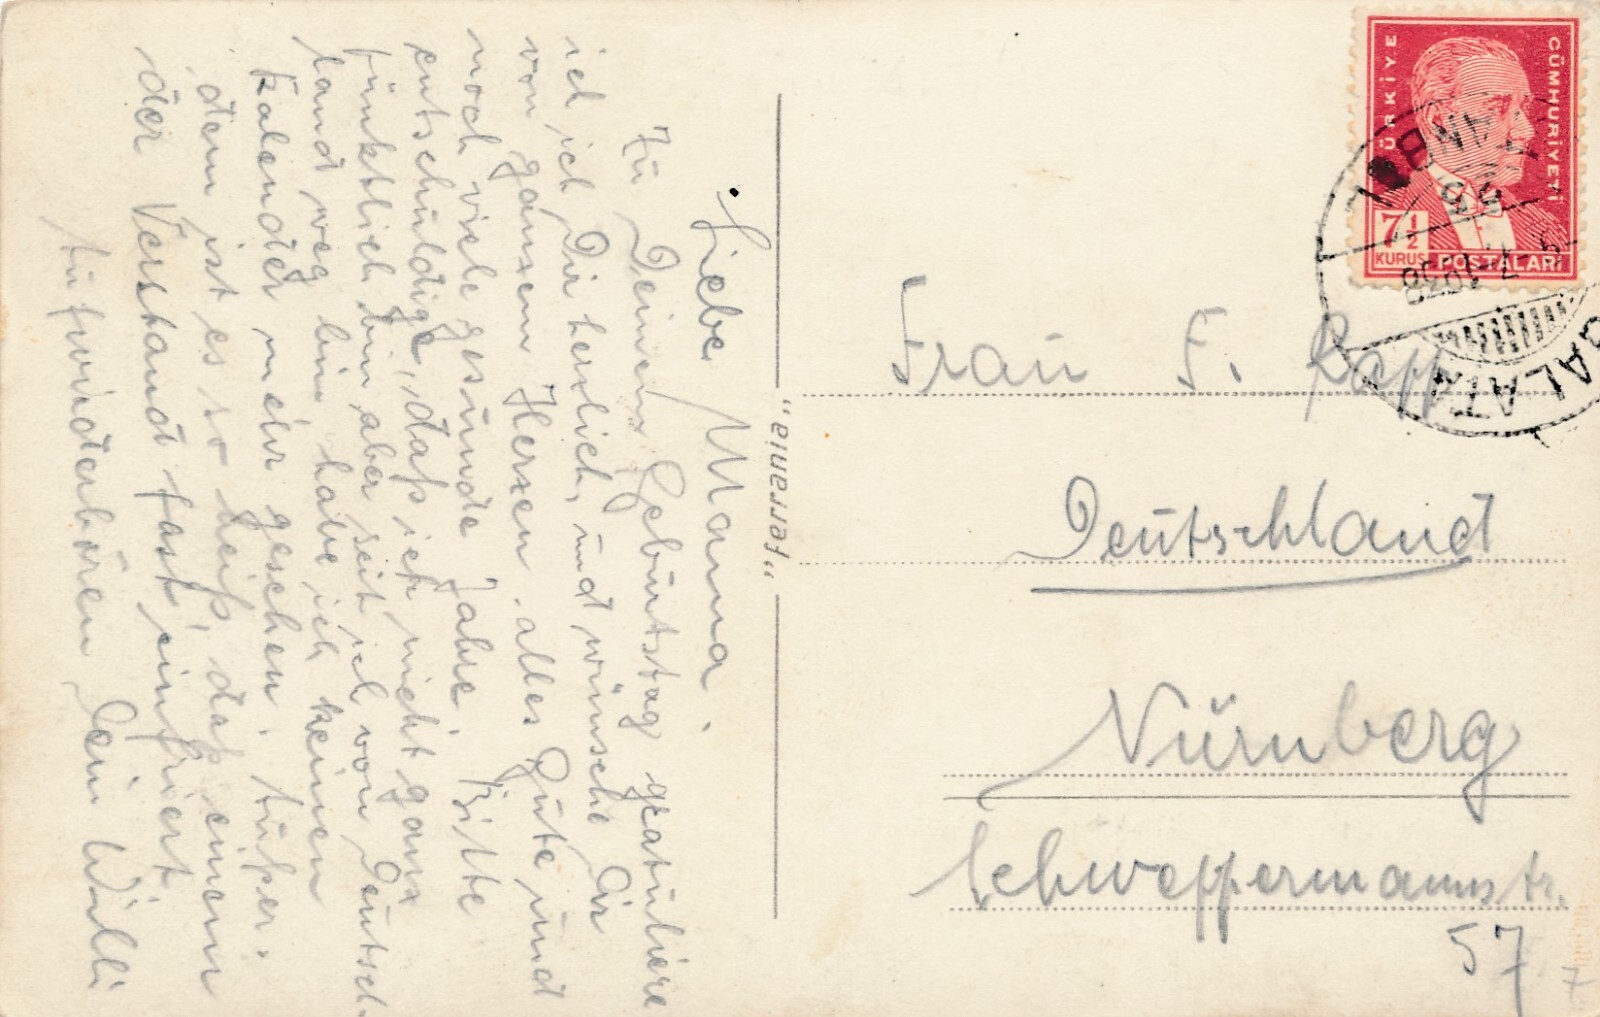 Liebe Mama.
Zu Deinem Geburtstag gratuliere
ich ich Dir herzlich, und wünsche Dir
von ganzem Herzen alles Gute und
noch viele gesunde Jahre. Bitte
entschuldige, daß ich nicht ganz
pünktlich bin, aber seit ich von Deutsch-
land weg bin, habe ich keinen
Kalender mehr gesehen. Außer-
dem ist es so heiß, daß einem
der Verstand fast einfriert.
Auf wiederhören Dein Willi
"ferrania"
TÜRKİYE CÜMHURİYETİ
7½
KURUŞ POSTALARI
GALATA
Frau F. Rapp
Deutschland
Nürnberg
Schweppermannstr.
57
7